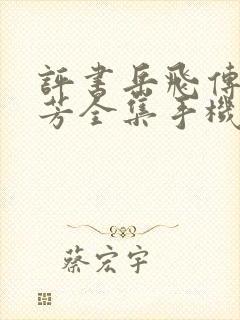 評書岳飛傳
芳全集手機
蔡宏宇